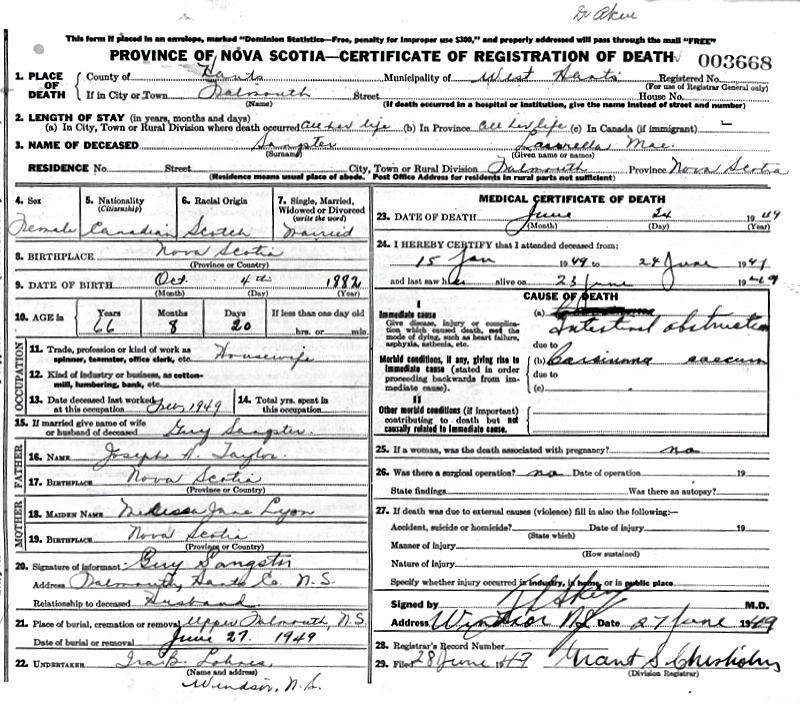 Dr Aker
This form if placed in an envelope, marked "Dominion Statistics—Free, penalty for improper use $300," and properly addressed will pass through the mail "FREE"
PROVINCE OF NOVA SCOTIA—CERTIFICATE OF REGISTRATION OF DEATH 003668
1. PLACE OF DEATH County of Hants Municipality of West Hants Registered No.
(For use of Registrar General only)
If in City or Town Falmouth Street House No.
(Name) (If death occurred in a hospital or institution, give the name instead of street and number)
2. LENGTH OF STAY (in years, months and days)
(a) In City, Town or Rural Division where death occurred All her life (b) In Province all her life (c) In Canada (if immigrant) –
3. NAME OF DECEASED Sangster Mae
(Surname) (Given name or names)
RESIDENCE No. Street City, Town or Rural Division Falmouth Province Nova Scotia
(Residence means usual place of abode. Post Office Address for residents in rural parts not sufficient)
4. Sex 5. Nationality (Citizenship) 6. Racial Origin 7. Single, Married, Widowed or Divorced (write the word)
Female Canadian Scotch Married
8. BIRTHPLACE Nova Scotia
(Province or Country)
9. DATE OF BIRTH Oct. 4th 1882
(Month) (Day) (Year)
10. AGE in Years Months Days If less than one day old
66 8 20 hrs. or min.
OCCUPATION
11. Trade, profession or kind of work as spinner, teamster, office clerk, etc. Housewife
12. Kind of industry or business, as cotton-mill, lumbering, bank, etc.
13. Date deceased last worked at this occupation 1949 14. Total yrs. spent in this occupation
15. If married give name of wife or husband of deceased Guy Sangster
FATHER
16. NAME Joseph A. Taylor
17. BIRTHPLACE Nova Scotia
(Province or Country)
MOTHER
18. MAIDEN NAME Melissa Jane Lyon
19. BIRTHPLACE Nova Scotia
(Province or Country)
20. Signature of informant Guy Sangster
Address Falmouth, Hants Co. N.S.
Relationship to deceased Husband
21. Place of burial, cremation or removal Upper Falmouth, N.S.
Date of burial or removal June 27. 1949
22. UNDERTAKER Ira B. Lohnes
(Name and address)
Windsor, N.S.
MEDICAL CERTIFICATE OF DEATH
23. DATE OF DEATH June 24 1949
(Month) (Day) (Year)
24. I HEREBY CERTIFY that I attended deceased from:
15 Jan 1949 to 24 June 1949
and last saw her alive on 23 June 1949
CAUSE OF DEATH
I
Immediate cause (a) Intestinal obstruction
Give disease, injury or complication which caused death, not the mode of dying, such as heart failure, asphyxia, asthenia, etc. due to
Morbid conditions, if any, giving rise to immediate cause (stated in order proceeding backwards from immediate cause) (b) Carcinoma caecum
due to
(c)
II
Other morbid conditions (if important) contributing to death but not causally related to immediate cause.
25. If a woman, was the death associated with pregnancy? no
26. Was there a surgical operation? no Date of operation 19
State findings Was there an autopsy?
27. If death was due to external causes (violence) fill in also the following:—
Accident, suicide or homicide? Date of injury 19
(State which)
Manner of injury
(How sustained)
Nature of injury
Specify whether injury occurred in industry, in home, or in public place
Signed by Aker M.D.
Address Windsor NS Date 27 June 1949
28. Registrar's Record Number
29. Filed 28 June 1949 Grant S. Chisholm
(Division Registrar)